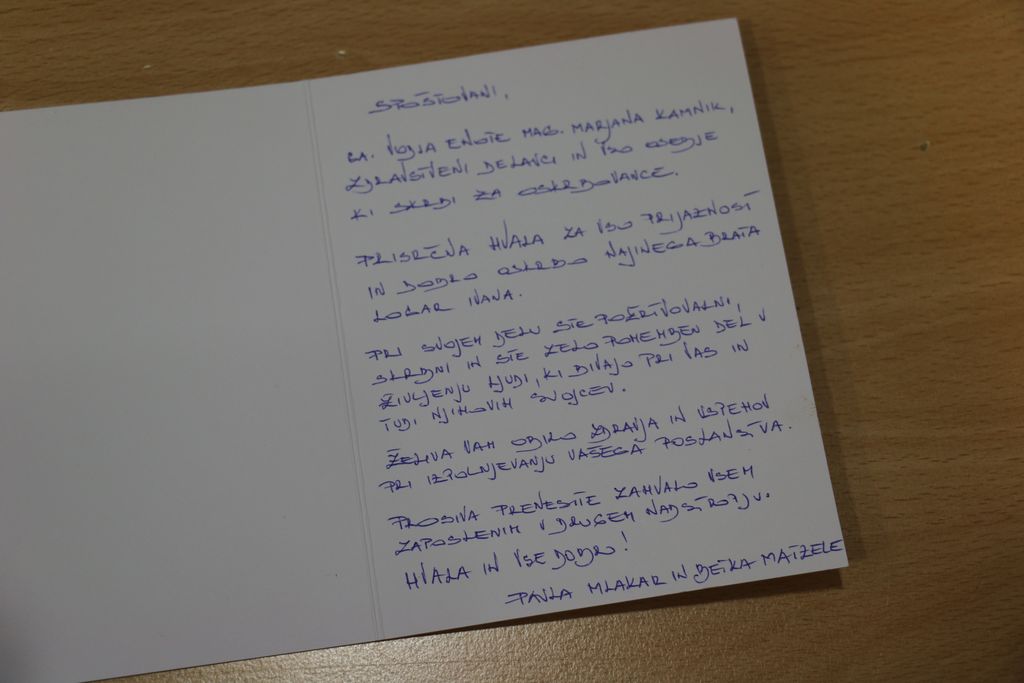 SPOŠTOVANI,
GA. VODJA ENOTE MAG. MARJANA KAMNIK,
ZDRAVSTVENI DELAVCI IN VSO OSEBJE
KI SKRBI ZA OSKRBOVANCE.
PRISRČNA HVALA ZA VSO PRIJAZNOST
IN DOBRO OSKRBO NAJINEGA BRATA
LOGAR IVANA.
PRI SVOJEM DELU STE POŽRTVOVALNI,
SKRBNI IN STE ZELO POMEMBEN DEL V
ŽIVLJENJU LJUDI, KI BIVAJO PRI VAS IN
TUDI NJIHOVIH SVOJCEV.
ŽELIVA VAM OBILO ZDRAVJA IN USPEHOV
PRI IZPOLNJEVANJU VAŠEGA POSLANSTVA.
PROSIVA PRENESITE ZAHVALO VSEM
ZAPOSLENIM V DRUGEM NADSTROPJU.
HVALA IN VSE DOBRO!
PAVLA MLAKAR IN BETKA MATZELE